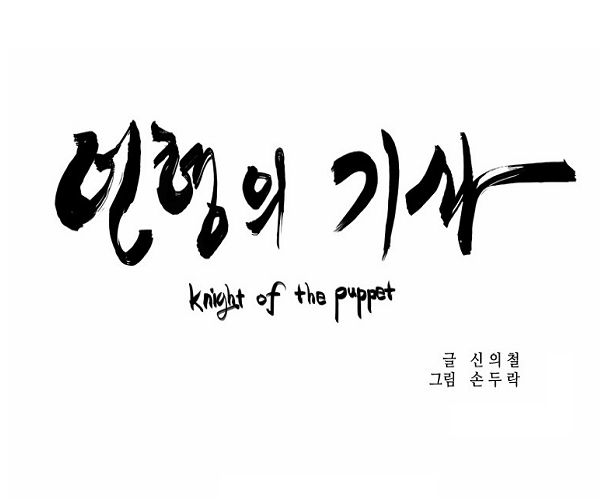 인형의 기사
knight of the puppet
글 신의철
그림 손두락